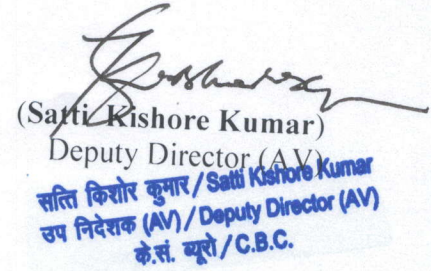 (Satti Kishore Kumar)
Deputy Director (AV)
सत्ति किशोर कुमार / Satti Kishore Kumar
उप निदेशक (AV) / Deputy Director (AV)
के.सं. ब्यूरो / C.B.C.